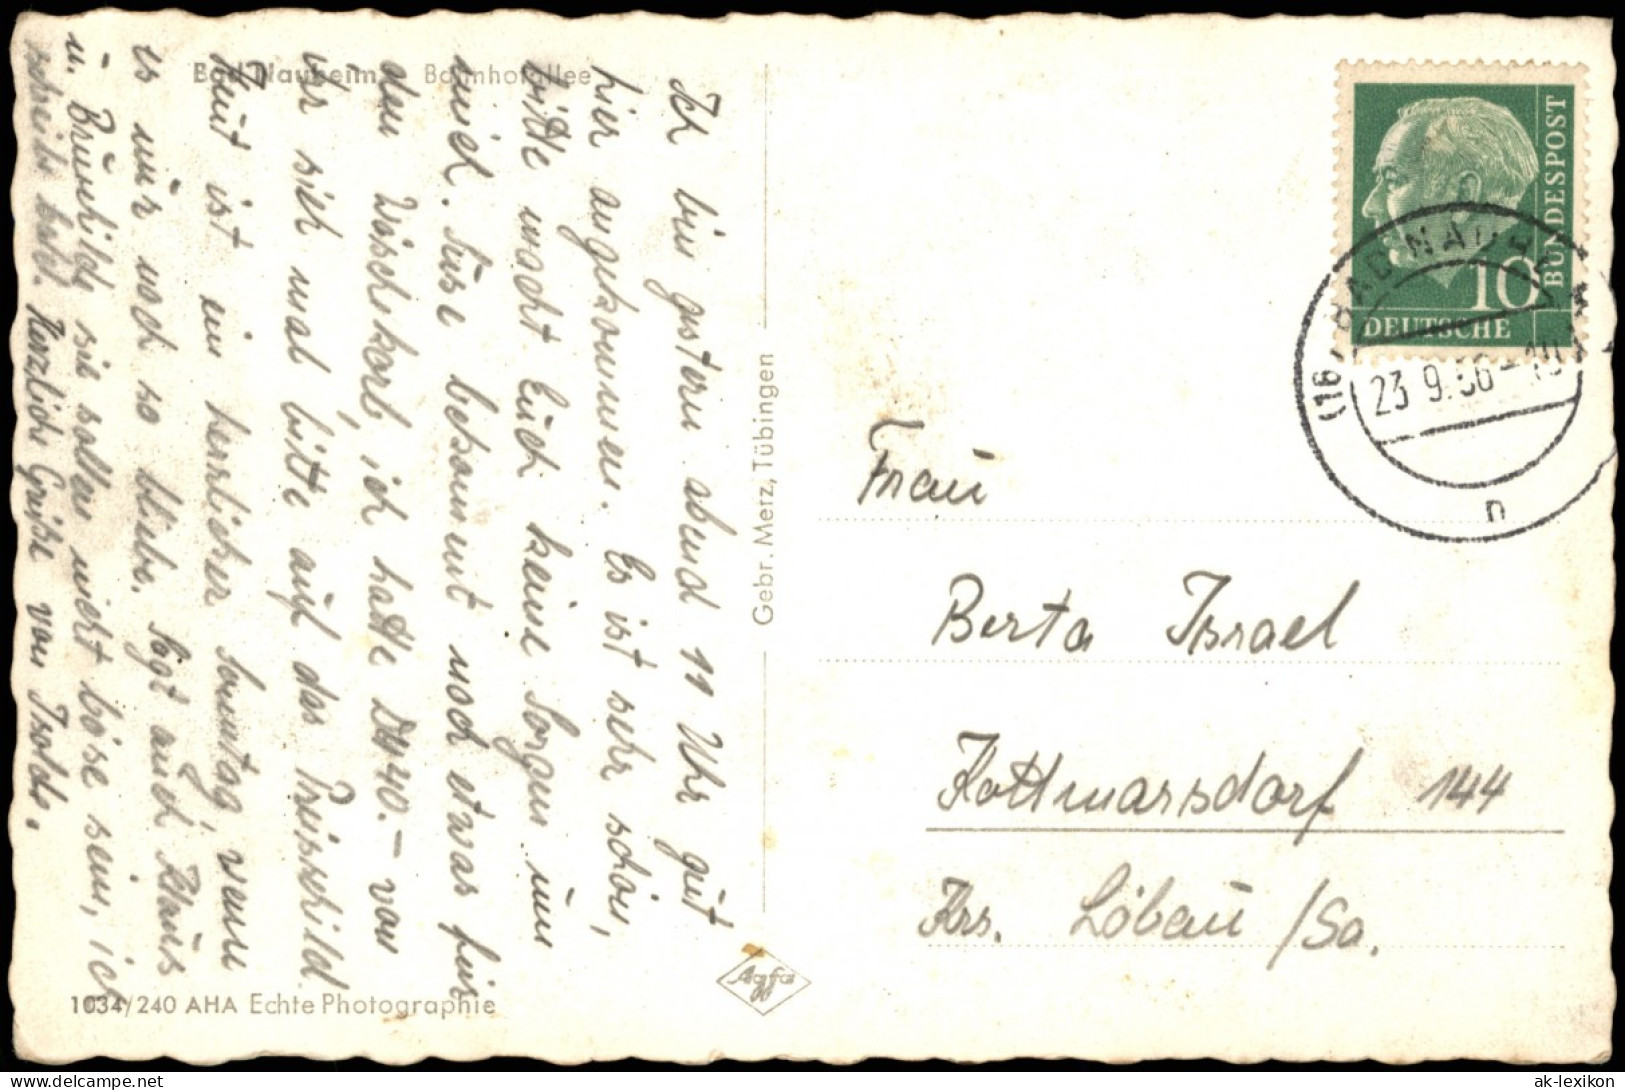 Bad Nauheim Bahnhofallee
Ich bin gestern abend 11 Uhr gut
hier angekommen. Es ist sehr schön,
bitte macht Euch keine Sorgen um
mich. Tust bekommt noch etwas für
den Wäschekorb, ich hatte DM 40.- von
Ihr sich mal bitte auf das Preisschild
Heut ist ein herrlicher Sonntag, wenn
es nur noch so bliebe. Sagt auch Klaus
u. Brunhilde sie sollen nicht böse sein, ich
schreibe bald. Herzliche Grüße von Isolde.
1034/240 AHA Echte Photographie
Gebr. Merz, Tübingen
Agfa
DEUTSCHE
BUNDESPOST
10
(16) BAD NAUHEIM
23.9.56-10
n
Frau
Berta Israel
Kottmarsdorf 144
Krs. Löbau/Sa.
ak-lexikon
delcampe.net